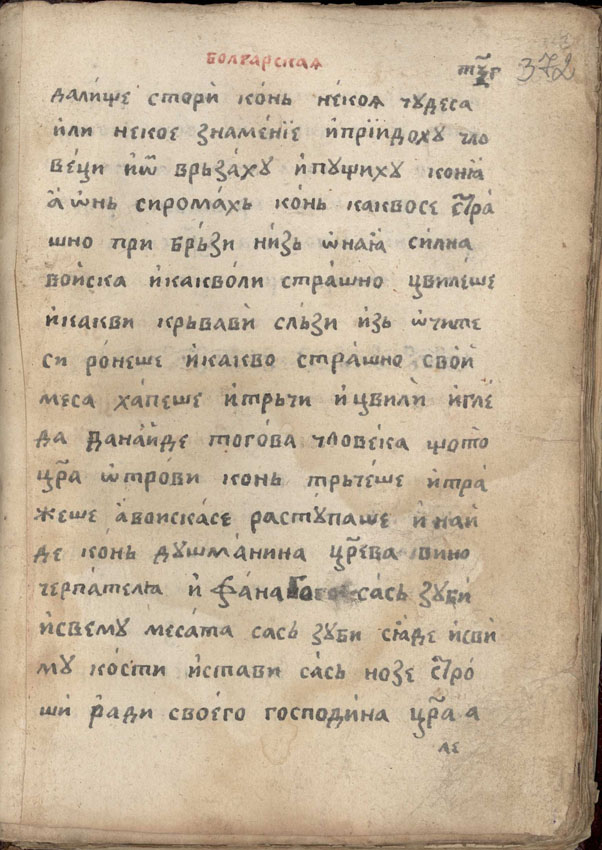 болгарская
тѯг 372
далище стори́ ко́нь не́коя чудеса
и҆ли некое знамені́е и҆прїи́дохꙋ чло
ве́ци и҆ѿ врьза́хꙋ и҆пꙋщихꙋ конꙗ̀
а҆ ѡ҆нь сирома́хь ко́нь каквосе стра́
шно при брь́зи ни́зь ѡ҆наꙗ̀ силна
вои́ска и҆какво́ли стра́шно цвилеше
и҆какви крьвави́ сль́зи и҆зь ѡ҆чите
си ро́неше и҆какво страшно свои́
меса ха́пеше и҆трьчи и҆цвили́ и҆гле́
да данаи҆де тогова человека щото
цр҃а ѡ҆трови конь трьче́ше и҆тра́
жеше а҆воиска́се растꙋ́паше и҆наи
де конь дꙋшма́нина цр҃ева вино
черпателꙗ и҆ фана го сась зꙋби
и҆свему меса́та сась зꙋби сꙗде и҆сви
мꙋ ко́сти и҆стави сась нозе стро́
ши ради своего господи́на цр҃а а
ле